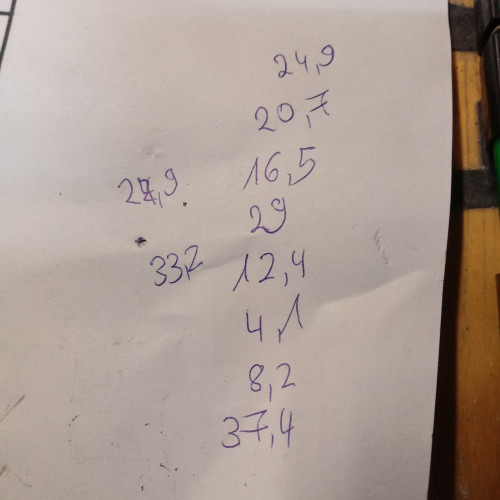 24,9
20,7
16,5
29
33,2 12,4
4,1
8,2
37,4